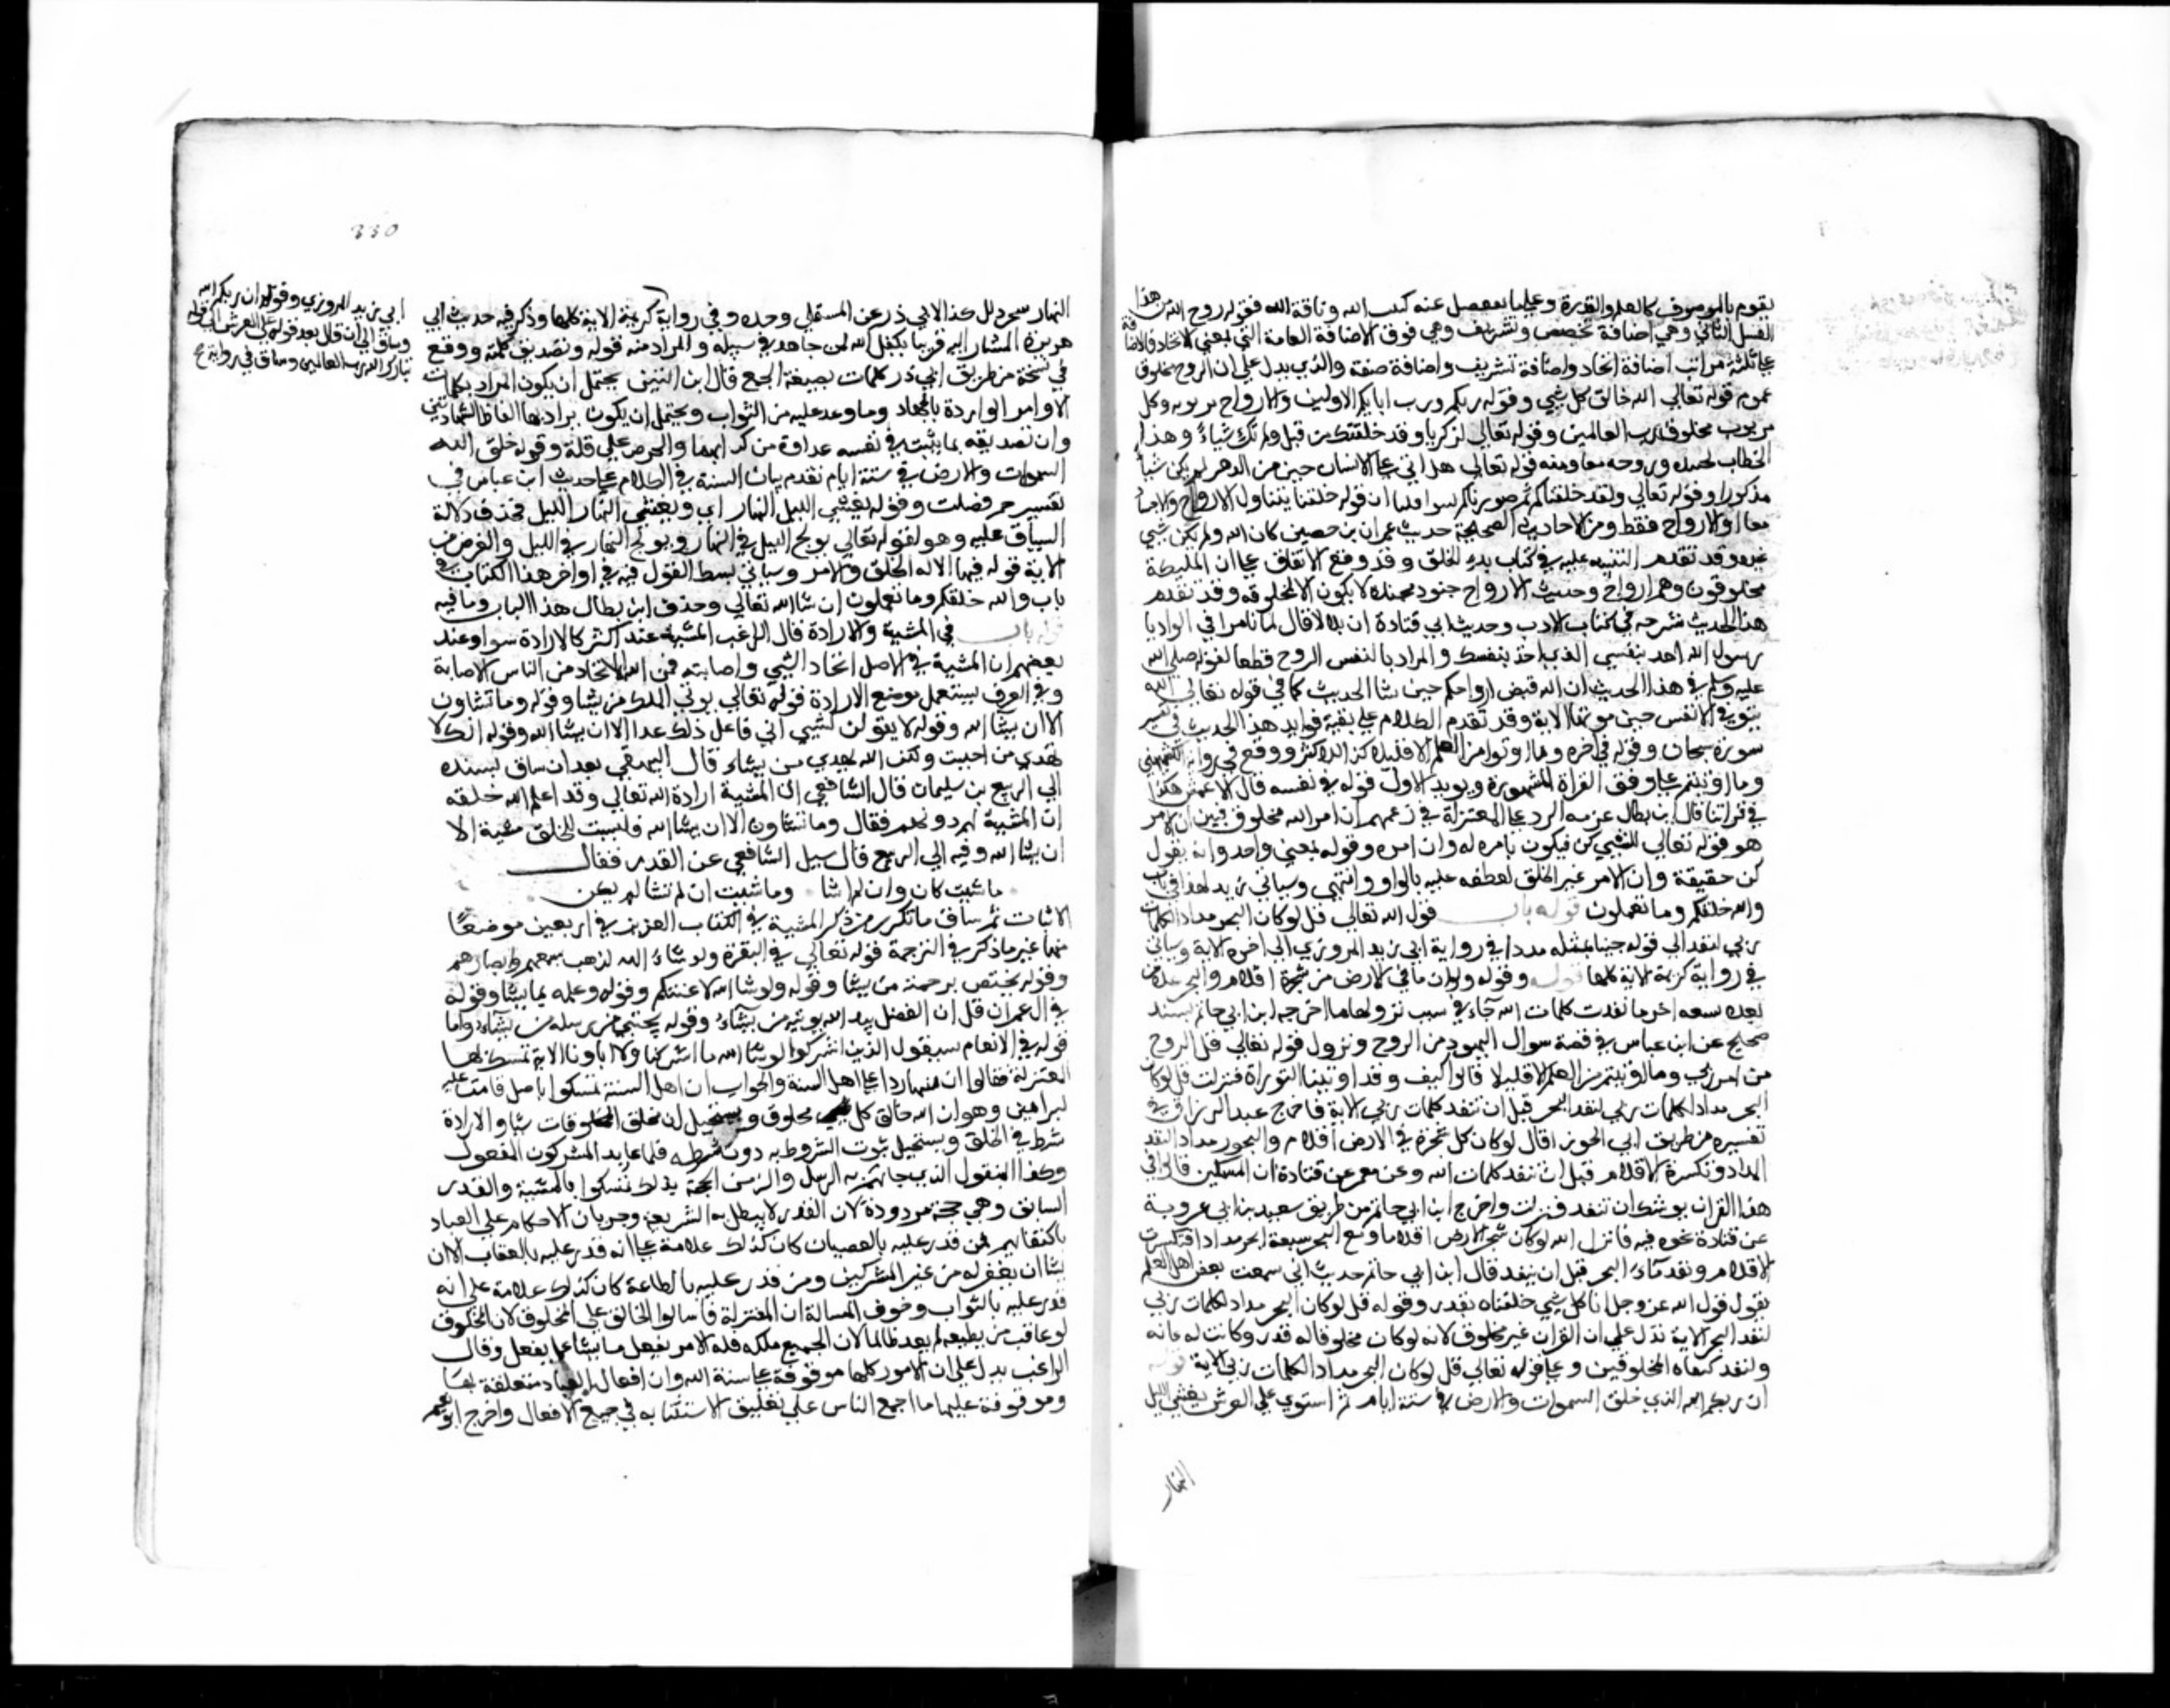 يقوم بالموصوف كالعلم والقدرة وعلى ما ينفصل عنه كبيت الله وناقة الله فقوله روح الله من هذا
القبيل الثاني وهي اضافة تخصيص وتشريف وهي فوق الاضافة العامة التي بمعنى الايجاد فالاضافة
على ثلاثة مراتب اضافة ايجاد واضافة تشريف واضافة صفة والذي يدل على ان الروح مخلوق
عموم قوله تعالى الله خالق كل شي وقوله ربكم ورب ابايكم الاولين والارواح مربوبه وكل
مربوب مخلوق رب العالمين وقوله تعالى لزكريا وقد خلقتك من قبل ولم تك شياء وهذا
الخطاب لجسده وروحه معا ومنه قوله تعالى هل اتى على الانسان حين من الدهر لم يكن شيا
مذكورا وقوله تعالى ولقد خلقناكم ثم صورناكم سوا قلنا ان قوله خلقنا يتناول الارواح والاجساد
معا او الارواح فقط ومن الاحاديث الصحيحة حديث عمران بن حصين كان الله ولم يكن شي
غيره وقد تقدم التنبيه عليه في كتاب بدء الخلق وقد وقع الاتفاق على ان الملايكة
مخلوقون وهم ارواح وحديث الارواح جنود مجنده لا يكون الا مخلوقه وقد تقدم
هذا الحديث شرحه في كتاب الادب وحديث ابي قتادة ان بلالا قال لما ناموا في الوادي يا
رسول الله اخذ بنفسي الذي اخذ بنفسك والمراد بالنفس الروح قطعا لقوله صلى الله
عليه وسلم في هذا الحديث ان الله قبض ارواحكم حين شا الحديث كما في قوله تعالى الله
يتوفى الانفس حين موتها الاية وقد تقدم الكلام على بقية فوايد هذا الحديث في تفسير
سورة سبحان وقوله في اخره وما اوتوا من العلم الا قليلا كذا للاكثر ووقع في رواية الكشميهني
وما اوتيتم على وفق القراة المشهورة ويويد الاول قوله في نفسه قال الاعمش هكذا
في قراتنا قال ابن بطال غرضه الرد على المعتزلة في زعمهم ان امر الله مخلوق فبين ان الامر
هو قوله تعالى للشي كن فيكون بامره له وان امره وقوله بمعنى واحد وانه يقول
كن حقيقة وان الامر غير الخلق لعطفه عليه بالواو انتهى وسياتي مزيد لهذا في باب
والله خلقكم وما تعملون قوله باب قول الله تعالى قل لو كان البحر مدادا لكلمات
ربي لنفد الى قوله جينا بمثله مددا في رواية ابي زيد المروزي الى اخره الاية وسياق
في رواية كريمة الاية كلها قوله وقوله ولو ان ما في الارض من شجرة اقلام والبحر يمده من
بعده سبعه ابحر ما نفدت كلمات الله جاء في سبب نزولها ما اخرجه ابن ابي حاتم بسند
صحيح عن ابن عباس في قصة سوال اليهود من الروح ونزول قوله تعالى قل الروح
من امر ربي وما اوتيتم من العلم الا قليلا قالوا كيف وقد اوتينا التوراة فنزلت قل لو كان
البحر مدادا لكلمات ربي لنفد البحر قبل ان تنفد كلمات ربي الاية فاخرج عبد الرزاق في
تفسيره من طريق ابي الجوزا قال لو كان كل شجرة في الارض اقلام والبحور مدادا لنفد
المداد وتكسرة الاقلام قبل ان تنفد كلمات الله وعن معمر عن قتادة ان المشركين قالوا في
هذا القران يوشك ان تنفد فنزلت واخرج ابن ابي حاتم من طريق سعيد بن ابي عروبة
عن قتادة نحوه فيه فانزل الله لو كان شجر الارض اقلاما ومع البحر سبعة ابحر مدادا لتكسرت
الاقلام ونفد ماء البحر قبل ان ينفد قال ابن ابي حاتم حديث ابي سمعت بعض اهل العلم
يقول قول الله عز وجل انا كل شي خلقناه بقدر وقوله قل لو كان البحر مدادا لكلمات ربي
لنفد البحر الاية تدل على ان القران غير مخلوق لانه لو كان مخلوقا له قدر وكانت له غاية
ولنفد كنفاد المخلوقين وعلى قوله تعالى قل لو كان البحر مدادا لكلمات ربي الاية قوله
ان ربكم الله الذي خلق السموات والارض في ستة ايام ثم استوى على العرش يغشي الليل
النهار
330
ابي زيد المروزي وقوله ان ربكم الله
وساق الى ان قال بعد قوله على العرش الى قوله
تبارك الله رب العالمين وساق في رواية
النهار سحر دلل هذا لابي ذر عن المستملي وحده وفي رواية كريمة الاية كلها وذكر فيه حديث ابي
هريرة المشار اليه قريبا تكفل الله لمن جاهد في سبيله والمراد منه قوله وتصديق كلمته ووقع
في نسخة من طريق ابي ذر كلمات بصيغة الجمع قال ابن التين يحتمل ان يكون المراد بكلماته
الاوامر الواردة بالجهاد وما وعد عليه من الثواب ويحتمل ان يكون يراد بها الفاظ الشهادتين
وان تصديقه بما يثبت في نفسه عداوة من كذبهما والحرص على قتله وقوله خلق الله
السموات والارض في ستة ايام تقدم بيان الستة في الكلام على حديث ابن عباس في
تفسير حم فصلت وقوله يغشي الليل النهار اي ويغشي النهار الليل فحذف دلالة
السياق عليه وهو لقوله تعالى يولج الليل في النهار ويولج النهار في الليل والغرض من
الاية قوله فيها الا له الخلق والامر وسياتي بسط القول فيه في اواخر هذا الكتاب في
باب والله خلقكم وما تعملون ان شا الله تعالى وحذف ابن بطال هذا الباب وما فيه
قوله باب في المشية والارادة قال الراغب المشية عند اكثر كالارادة سوا وعند
بعضهم ان المشية في الاصل ايجاد الشي واصابته فمن الله الايجاد من الناس الاصابة
وفي العرف يستعمل موضع الارادة قوله تعالى يوتي الملك من يشا وقوله وما تشاون
الا ان يشا الله وقوله لا يقولن لشي اني فاعل ذلك غدا الا ان يشا الله وقوله انك لا
تهدي من احببت ولكن الله يهدي من يشاء قال البيهقي بعد ان ساق بسنده
الى الربيع بن سليمان قال الشافعي ان المشية ارادة الله تعالى وقد اعلم الله خلقه
ان المشية له دونهم فقال وما تشاون الا ان يشا الله فليست للخلق مشية الا
ان يشا الله وفيه الى الربيع قال سيل الشافعي عن القدر فقال
ما شيت كان وان لم اشا وما شيت ان لم تشا لم يكن
الابيات ثم ساق ما تكرر من ذكر المشية في الكتاب العزيز في اربعين موضعا
منها غير ما ذكر في الترجمة قوله تعالى في البقرة ولو شاء الله لذهب بسمعهم وابصارهم
وقوله يختص برحمته من يشا وقوله ولو شا الله لاعنتكم وقوله وعلمه بما يشا وقوله
في ال عمران قل ان الفضل بيد الله يوتيه من يشاء وقوله يجتبي من رسله من يشاء واما
قوله في الانعام سيقول الذين اشركوا لو شا الله ما اشركنا ولا اباونا الاية تمسك بها
المعتزلة فقالوا ان فيها ردا على اهل السنة والجواب ان اهل السنة تمسكوا باصل قامت عليه
البراهين وهو ان الله خالق كل مخلوق ويستحيل ان يخلق المخلوقات شيا والارادة
شرط في الخلق ويستحيل ثبوت المشروط به دون شرطه فلما عاند المشركون المعقول
وكذا المنقول الذي جاتهم به الرسل والزمن الحجة بذلك تمسكوا بالمشية والقدر
السابق وهي حجة مردودة لان القدر لا يبطل به الشريعة وجريان الاحكام على العباد
باكتسابهم فمن قدر عليه بالعصيان كان كذلك علامة على انه قدر عليه بالعقاب الا ان
يشا ان يغفر له من غير المشركين ومن قدر عليه بالطاعة كان كذلك علامة على انه
قدر عليه بالثواب وحرف المسالة ان المعتزلة قاسوا الخالق على المخلوق لان المخلوق
لو عاقب من يطيعه لم يعد ظالما لان الجميع ملكه فله الامر يفعل ما يشا عما يفعل وقال
الراغب يدل على ان الامور كلها موقوفة على مشية الله وان افعال العباد متعلقة بها
وموقوفة عليها ما اجمع الناس على تعليق الاستثنا به في جميع الافعال واخرج ابو نعيم